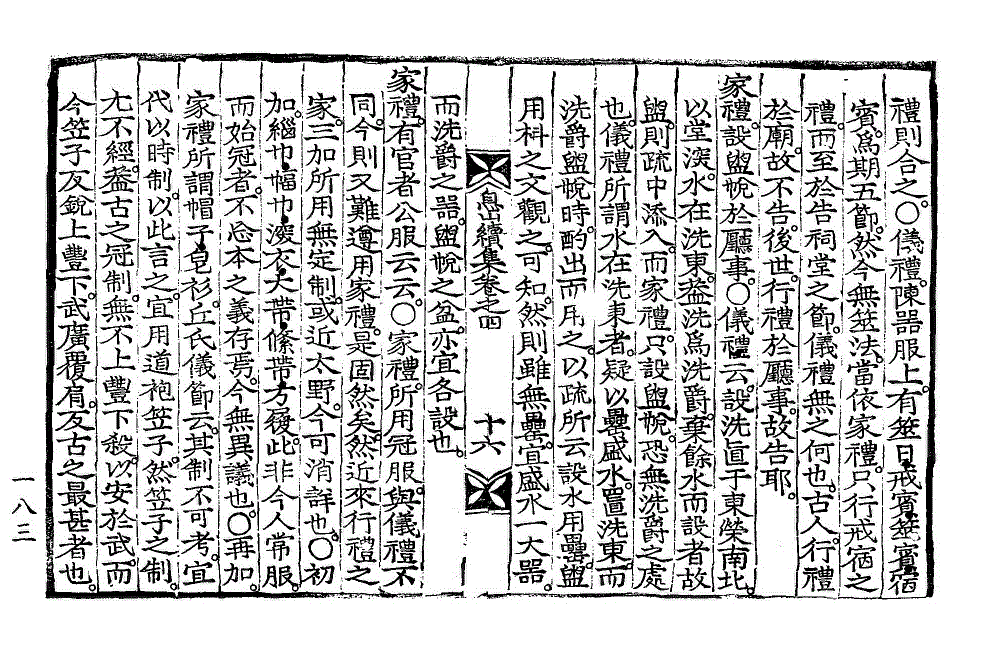 禮則合之。○儀禮。陳器服上。有筮日戒賓筮賓宿
賓爲期五節。然今無筮法。當依家禮。只行戒宿之
禮。而至於告祠堂之節。儀禮無之何也。古人。行禮
於廟。故不告。後世。行禮於廳事。故告耶。
家禮。設盥帨於廳事。○儀禮云。設洗直于東榮南北
以堂深。水在洗東。盖洗爲洗爵。棄餘水而設者故
盥。則疏中添入。而家禮。只設盥帨。恐無洗爵之處
也。儀禮所謂水在洗東者。疑以罍盛水。置洗東。而
洗爵盥帨時。酌出而用之。以疏所云設水用罍。盥
用枓之文觀之。可知。然則雖無罍。宜盛水一大器。
息山續集卷之四
十六
而洗爵之器。盥帨之盆。亦宜各設也。
家禮。有官者公服云云。○家禮所用冠服。與儀禮不
同。今則又難遵用家禮。是固然矣。然近來行禮之
家。三加所用無定制。或近太野。今可消詳也。○初
加。緇巾幅巾深衣大帶絛帶方履。此非今人常服。
而始冠者。不忘本之義存焉。今無異議也。○再加。
家禮所謂帽子皂衫。丘氏儀節云。其制不可考。宜
代以時制。以此言之。宜用道袍笠子。然笠子之制。
尤不經。盖古之冠制。無不上豐下殺。以安於武。而
今笠子反銳上豐下。武廣覆肩。反古之最甚者也。
一八三